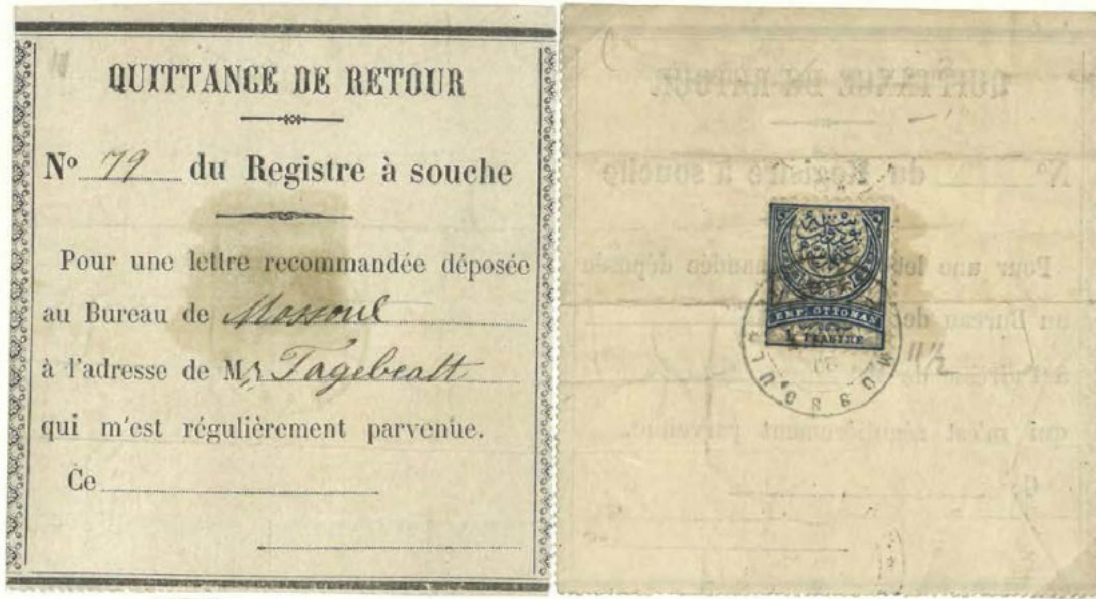 QUITTANCE DE RETOUR
Nº 79 du Registre à souche
Pour une lettre recommandée déposée
au Bureau de Mossoul
à l'adresse de Mr Tagebealt
qui m'est régulièrement parvenue.
Ce
EMP. OTTOMAN
1 PIASTRE
MOSSOUL
11½